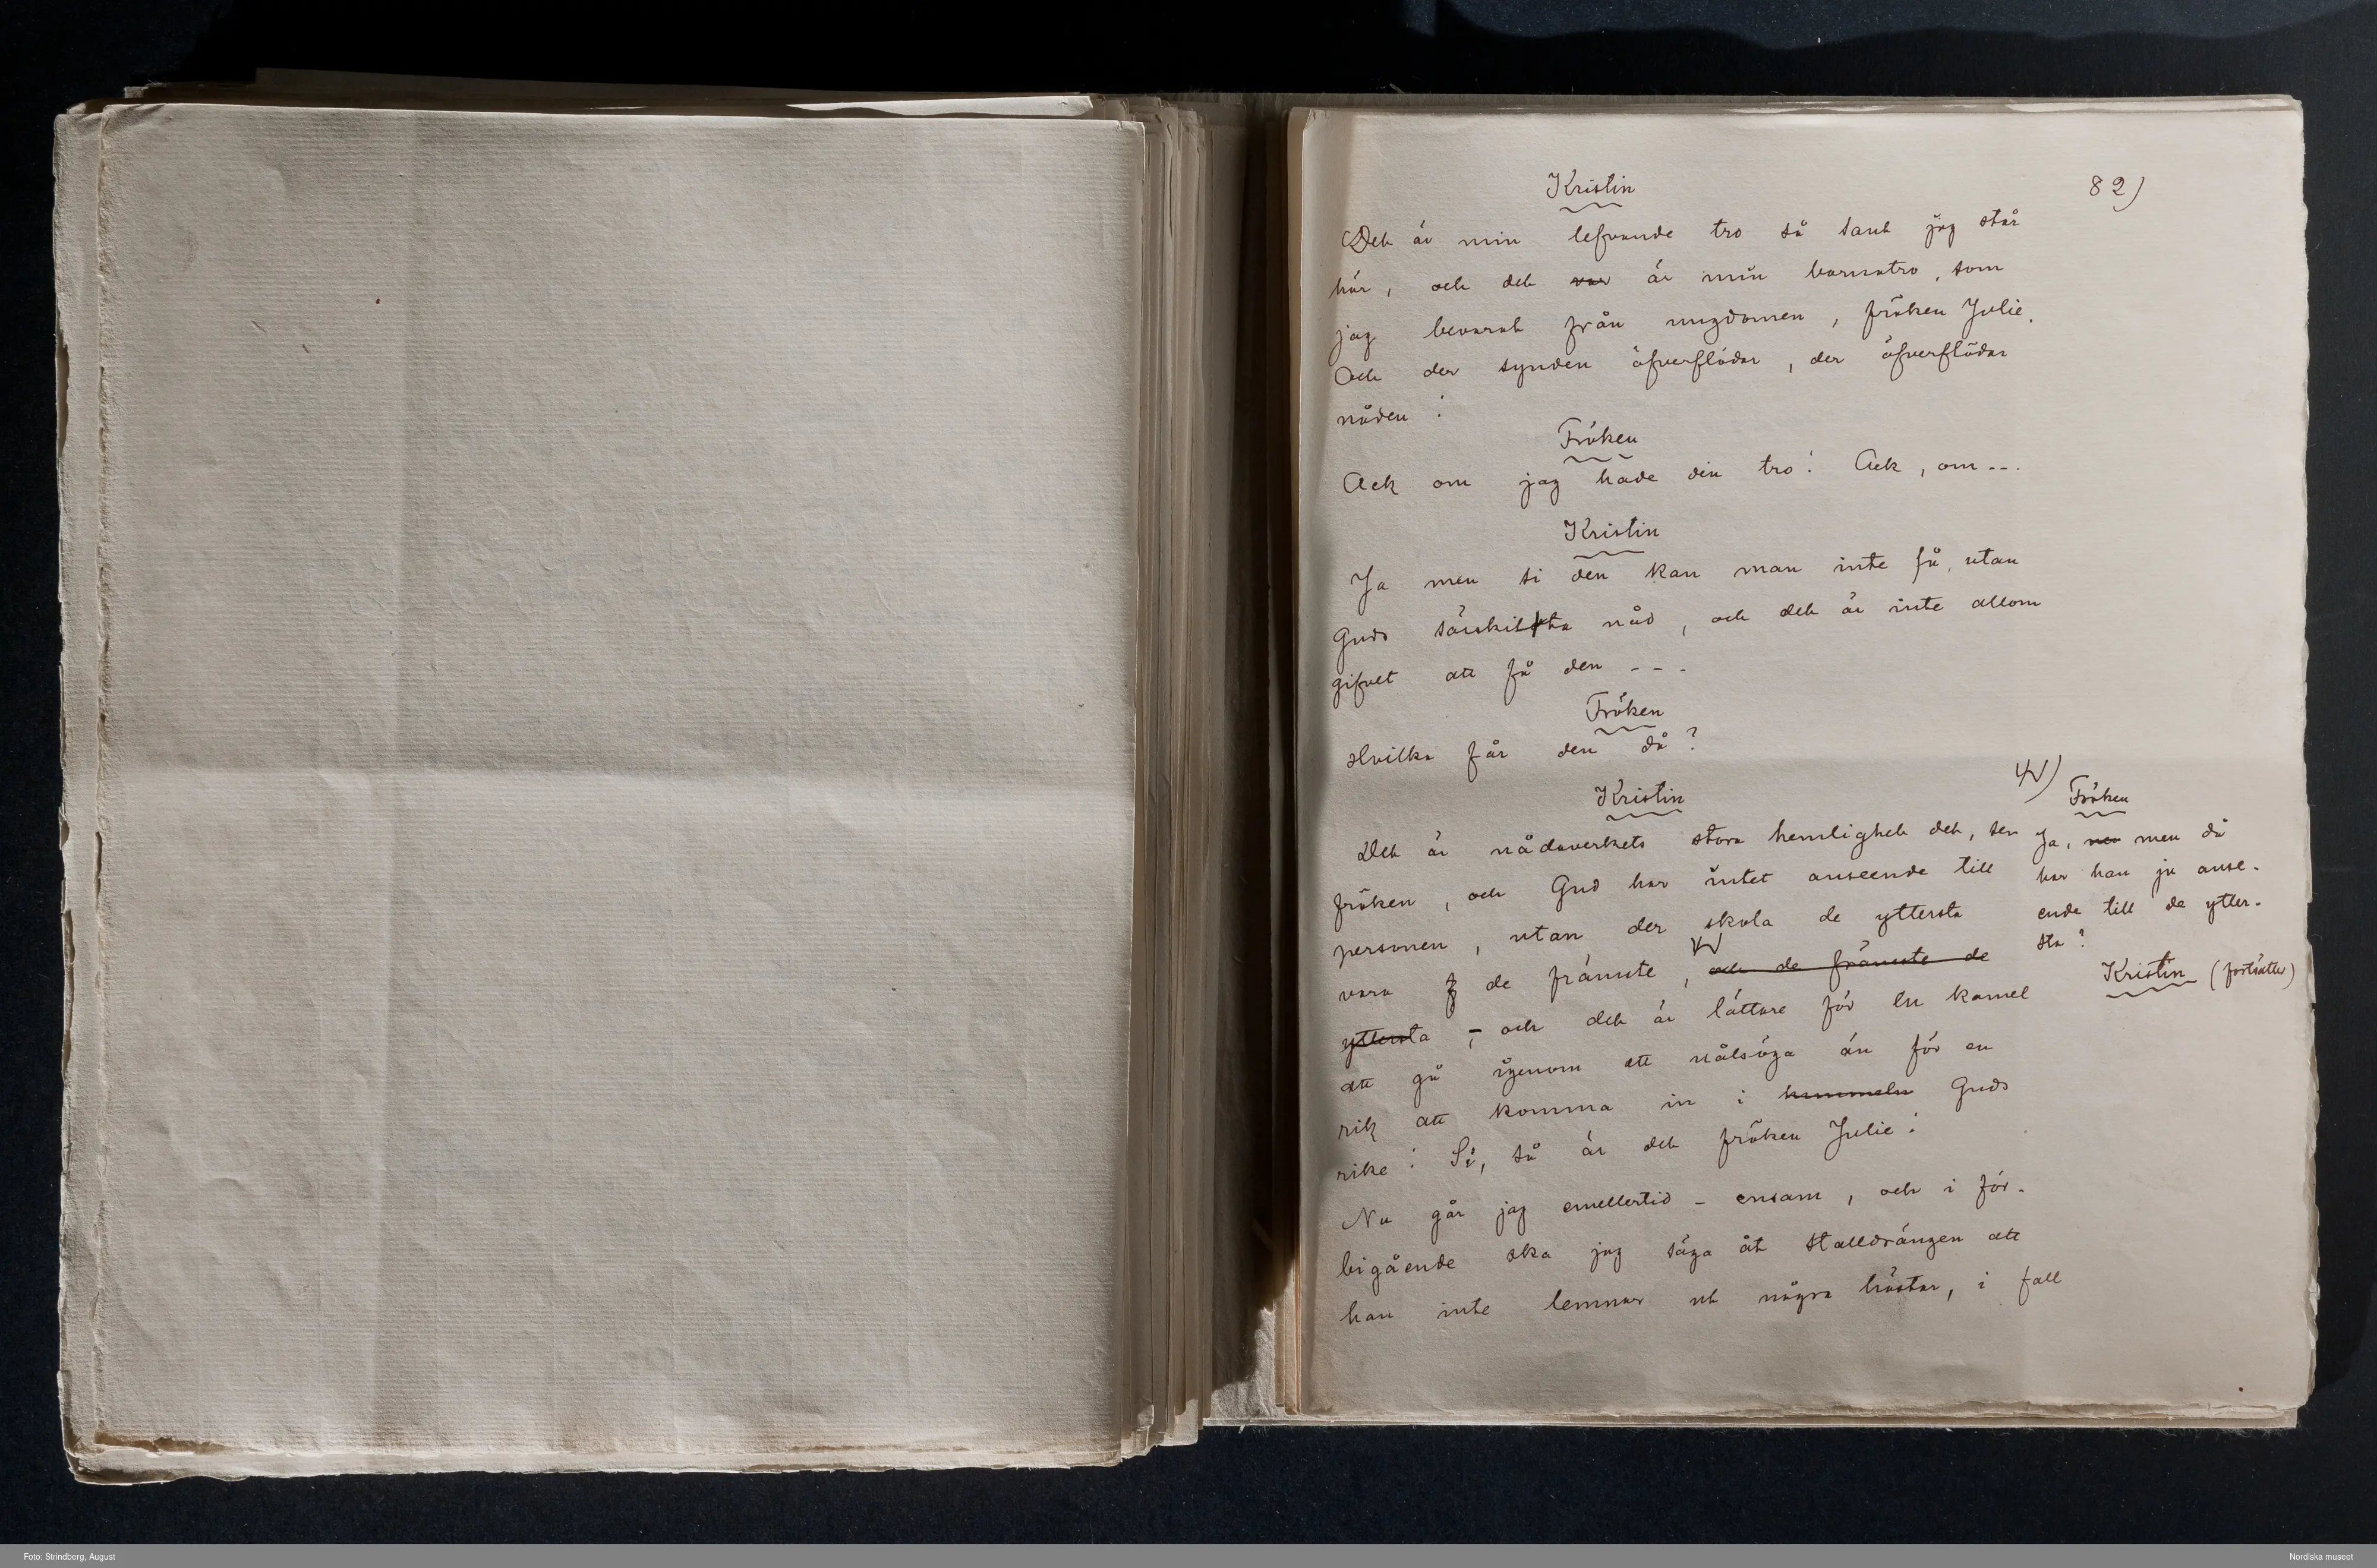 82)
Kristin
Det är min lefvande tro så sant jag står
här, och det var är min barnatro, som
jag bevarat från ungdomen, fröken Julie.
Och der synden öfverflödar, der öfverflödar
nåden!
Fröken
Ack om jag hade din tro! Ack, om---
Kristin
Ja men si den kan man inte få, utan
Guds särskilta nåd, och det är inte allom
gifvet att få den ---
Fröken
Hvilka får den då?
Kristin
Det är nådaverkets stora hemlighet det, ser
fröken, och Gud har intet anseende till
personen, utan der skola de yttersta
vara de främste, och de främste de
yttersta ; och det är lättare för en kamel
att gå igenom ett nålsöga än för en
rik att komma in i himmeln Guds
rike! Si, så är det fröken Julie!
Nu går jag emellertid - ensam, och i för-
bigående ska jag säga åt stalldrängen att
han inte lemnar ut några hästar, i fall
Fröken
Ja, men då
har han ju anse-
ende till de ytter-
sta?
Kristin (fortsätter)
Foto: Strindberg, August
Nordiska museet